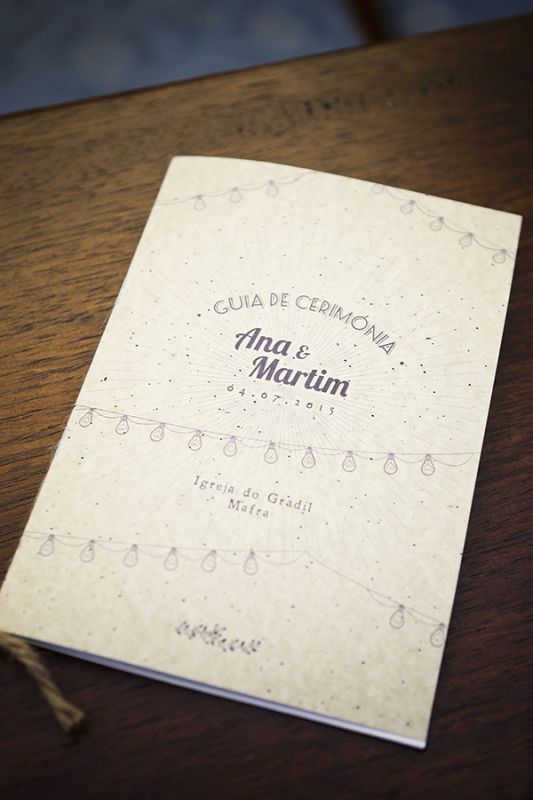 GUIA DE CERIMÓNIA
Ana &
Martim
04.07.2015
Igreja do Gradil
Mafra